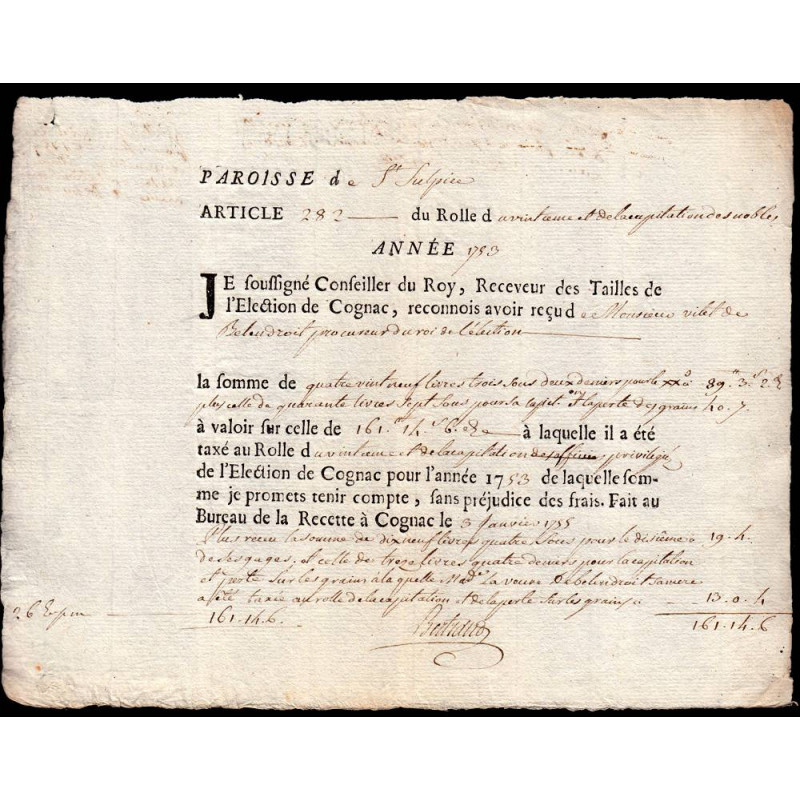 PAROISSE de St Sulpice
ARTICLE 282 du Rolle d u vintieme et de la capitation des nobles
ANNÉE 1753
JE soussigné Conseiller du Roy, Receveur des Tailles de
l'Election de Cognac, reconnois avoir reçu de Monsieur vitet de
Belendroit procureur du roi de l'élection
la somme de quatre vint neuf livres trois sous deux deniers pour le xx.e 89.# 3.s 2.d
plus celle de quarante livres sept sous pour la capit.on et la perte des grains 40. 7.
à valoir sur celle de 161.# 14.s 6.d à laquelle il a été
taxé au Rolle d u vintieme et de la capitation des officiers privilegié
de l'Election de Cognac pour l'année 1753 de laquelle som-
me je promets tenir compte, sans préjudice des frais. Fait au
Bureau de la Recette à Cognac le 3 Janvier 1755
Plus receu la somme de dix neuf livres quatre sous pour le dixième 19. 4.
de ses gages, et celle de treze livres quatre deniers pour la capitation
et perte sur les grains a laquelle Mad.e la veuve de belendroit sa mere
a été taxée au rolle de la capitation et de la perte sur les grains 13. 0. 4
161. 14. 6. 161. 14. 6
Bertrand